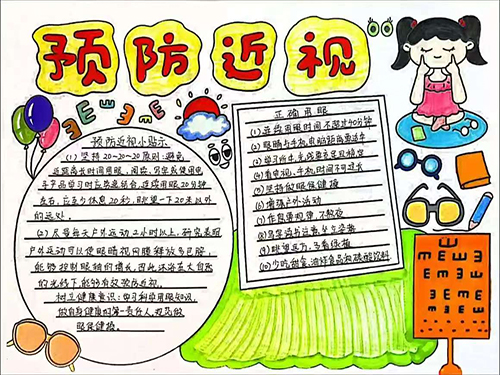 预防近视
预防近视小贴示
(1) 坚持20-20-20原则:避免
近距离长时间用眼,阅读、写字或使用电
子产品学习时应劳逸结合,连续用眼20分钟
左右,应至少休息20秒,眺望一下20米以外
的远处。
(2) 尽量每天户外运动2小时以上,研究表明
户外运动可以使眼睛视网膜释放多巴胺,
能够控制眼轴的增长,因此沐浴在大自然
的光线下,能够有效预防近视。
树立健康意识:学习科学用眼知识,
做自身健康的第一责任人,规范做
眼保健操。
正确用眼
(1) 连续用眼时间不超过40分钟
(2) 眼睛与手机、电脑距离要适中
(3) 学习近书,光线要充足且稳定
(4) 看电视、手机,时间不可过长
(5) 坚持做眼保健操
(6) 增强户外活动
(7) 作息要规律,不熬夜
(8) 写字读书注意坐立姿势
(9) 眺望远方,多看绿植
(10) 少吃甜食、油炸食品和碳酸饮料